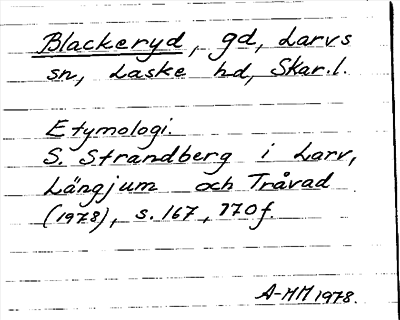 Blackeryd, gd, Larvs
sn, Laske hd, Skar.l.
Etymologi.
S. Strandberg i Larv,
Längjum och Tråvad
(1978), s. 167, 170f.
A-MM 1978.